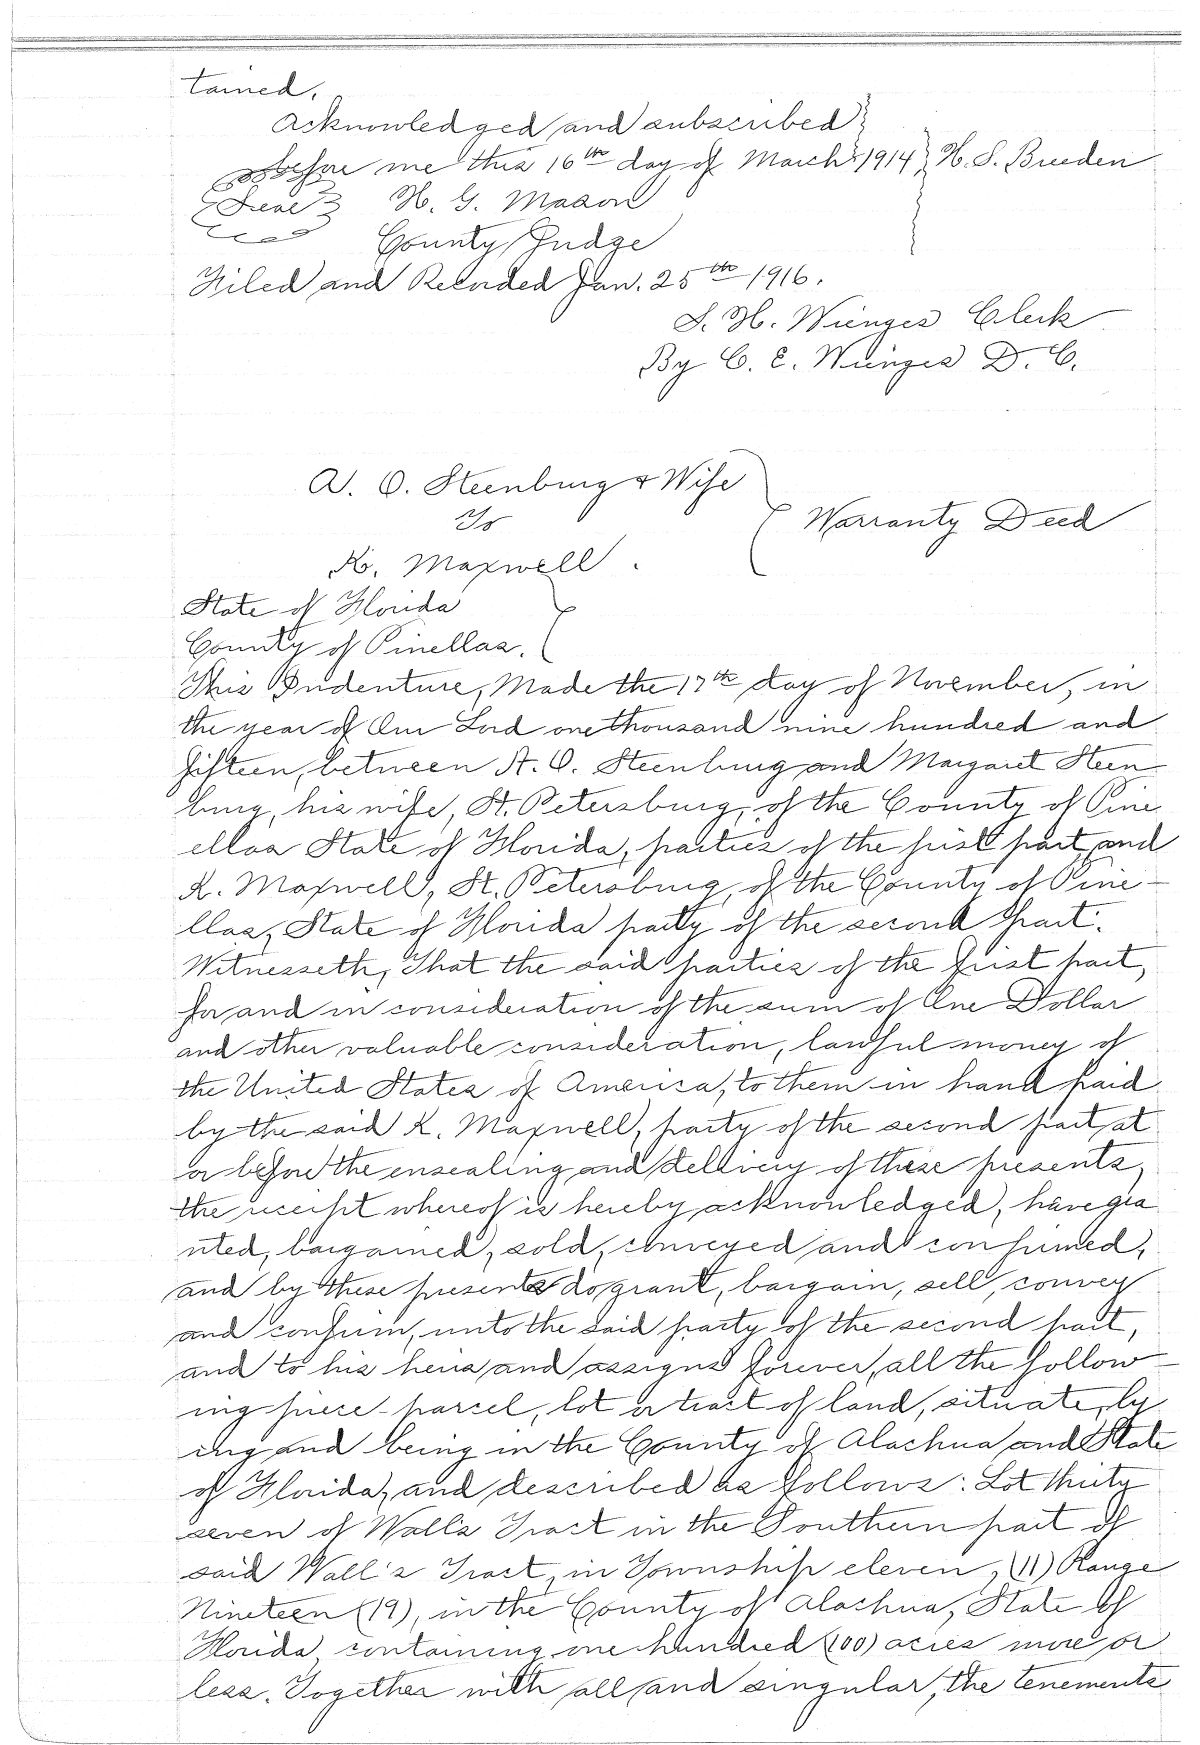 tained.
Acknowledged and subscribed
before me this 16th day of March 1914 H. S. Breeden
Seal H. G. Mason
County Judge
Filed and Recorded Jan. 25th 1916.
S. H. Wienges Clerk
By C. E. Wienges D. C.
A. O. Steenburg & Wife
To
Warranty Deed
K. Maxwell.
State of Florida
County of Pinellas.
This Indenture, Made the 17th day of November, in
the year of Our Lord one thousand nine hundred and
fifteen, between A. O. Steenburg and Margaret Steen
burg, his wife, St. Petersburg, of the County of Pine
ellas State of Florida, parties of the first part, and
K. Maxwell, St. Petersburg, of the County of Pine-
llas, State of Florida party of the second part.
Witnesseth, That the said parties of the first part,
for and in consideration of the sum of One Dollar
and other valuable consideration, lawful money of
the United States of America, to them in hand paid
by the said K. Maxwell, party of the second part, at
or before the ensealing and delivery of these presents,
the receipt whereof is hereby acknowledged, have gra
nted, bargained, sold, conveyed and confirmed,
and by these presents do grant, bargain, sell, convey
and confirm, unto the said party of the second part,
and to his heirs and assigns forever, all the follow-
ing piece-parcel, lot or tract of land, situate, ly
ing and being in the County of Alachua and State
of Florida, and described as follows: Lot thirty
seven of Wall's Tract in the Southern part of
said Wall's Tract, in Township eleven, (11) Range
Nineteen (19), in the County of Alachua, State of
Florida, containing one hundred (100) acres more or
less. Together with all and singular, the tenements